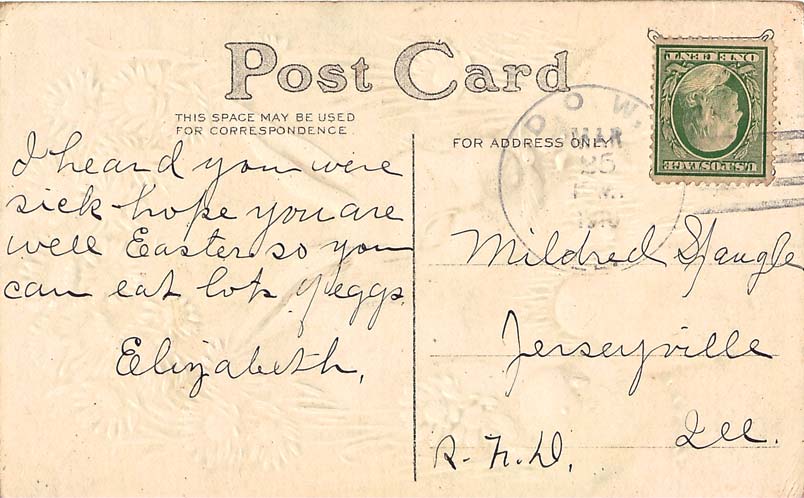 Post Card
THIS SPACE MAY BE USED
FOR CORRESPONDENCE.
FOR ADDRESS ONLY.
ONE CENT
U.S. POSTAGE
DOW,
MAR
25
1910
I heard you were
sick hope you are
well Easter so you
can eat lots of eggs.
Elizabeth,
Mildred Spaugle
Jerseyville
Ill.
R. F. D.